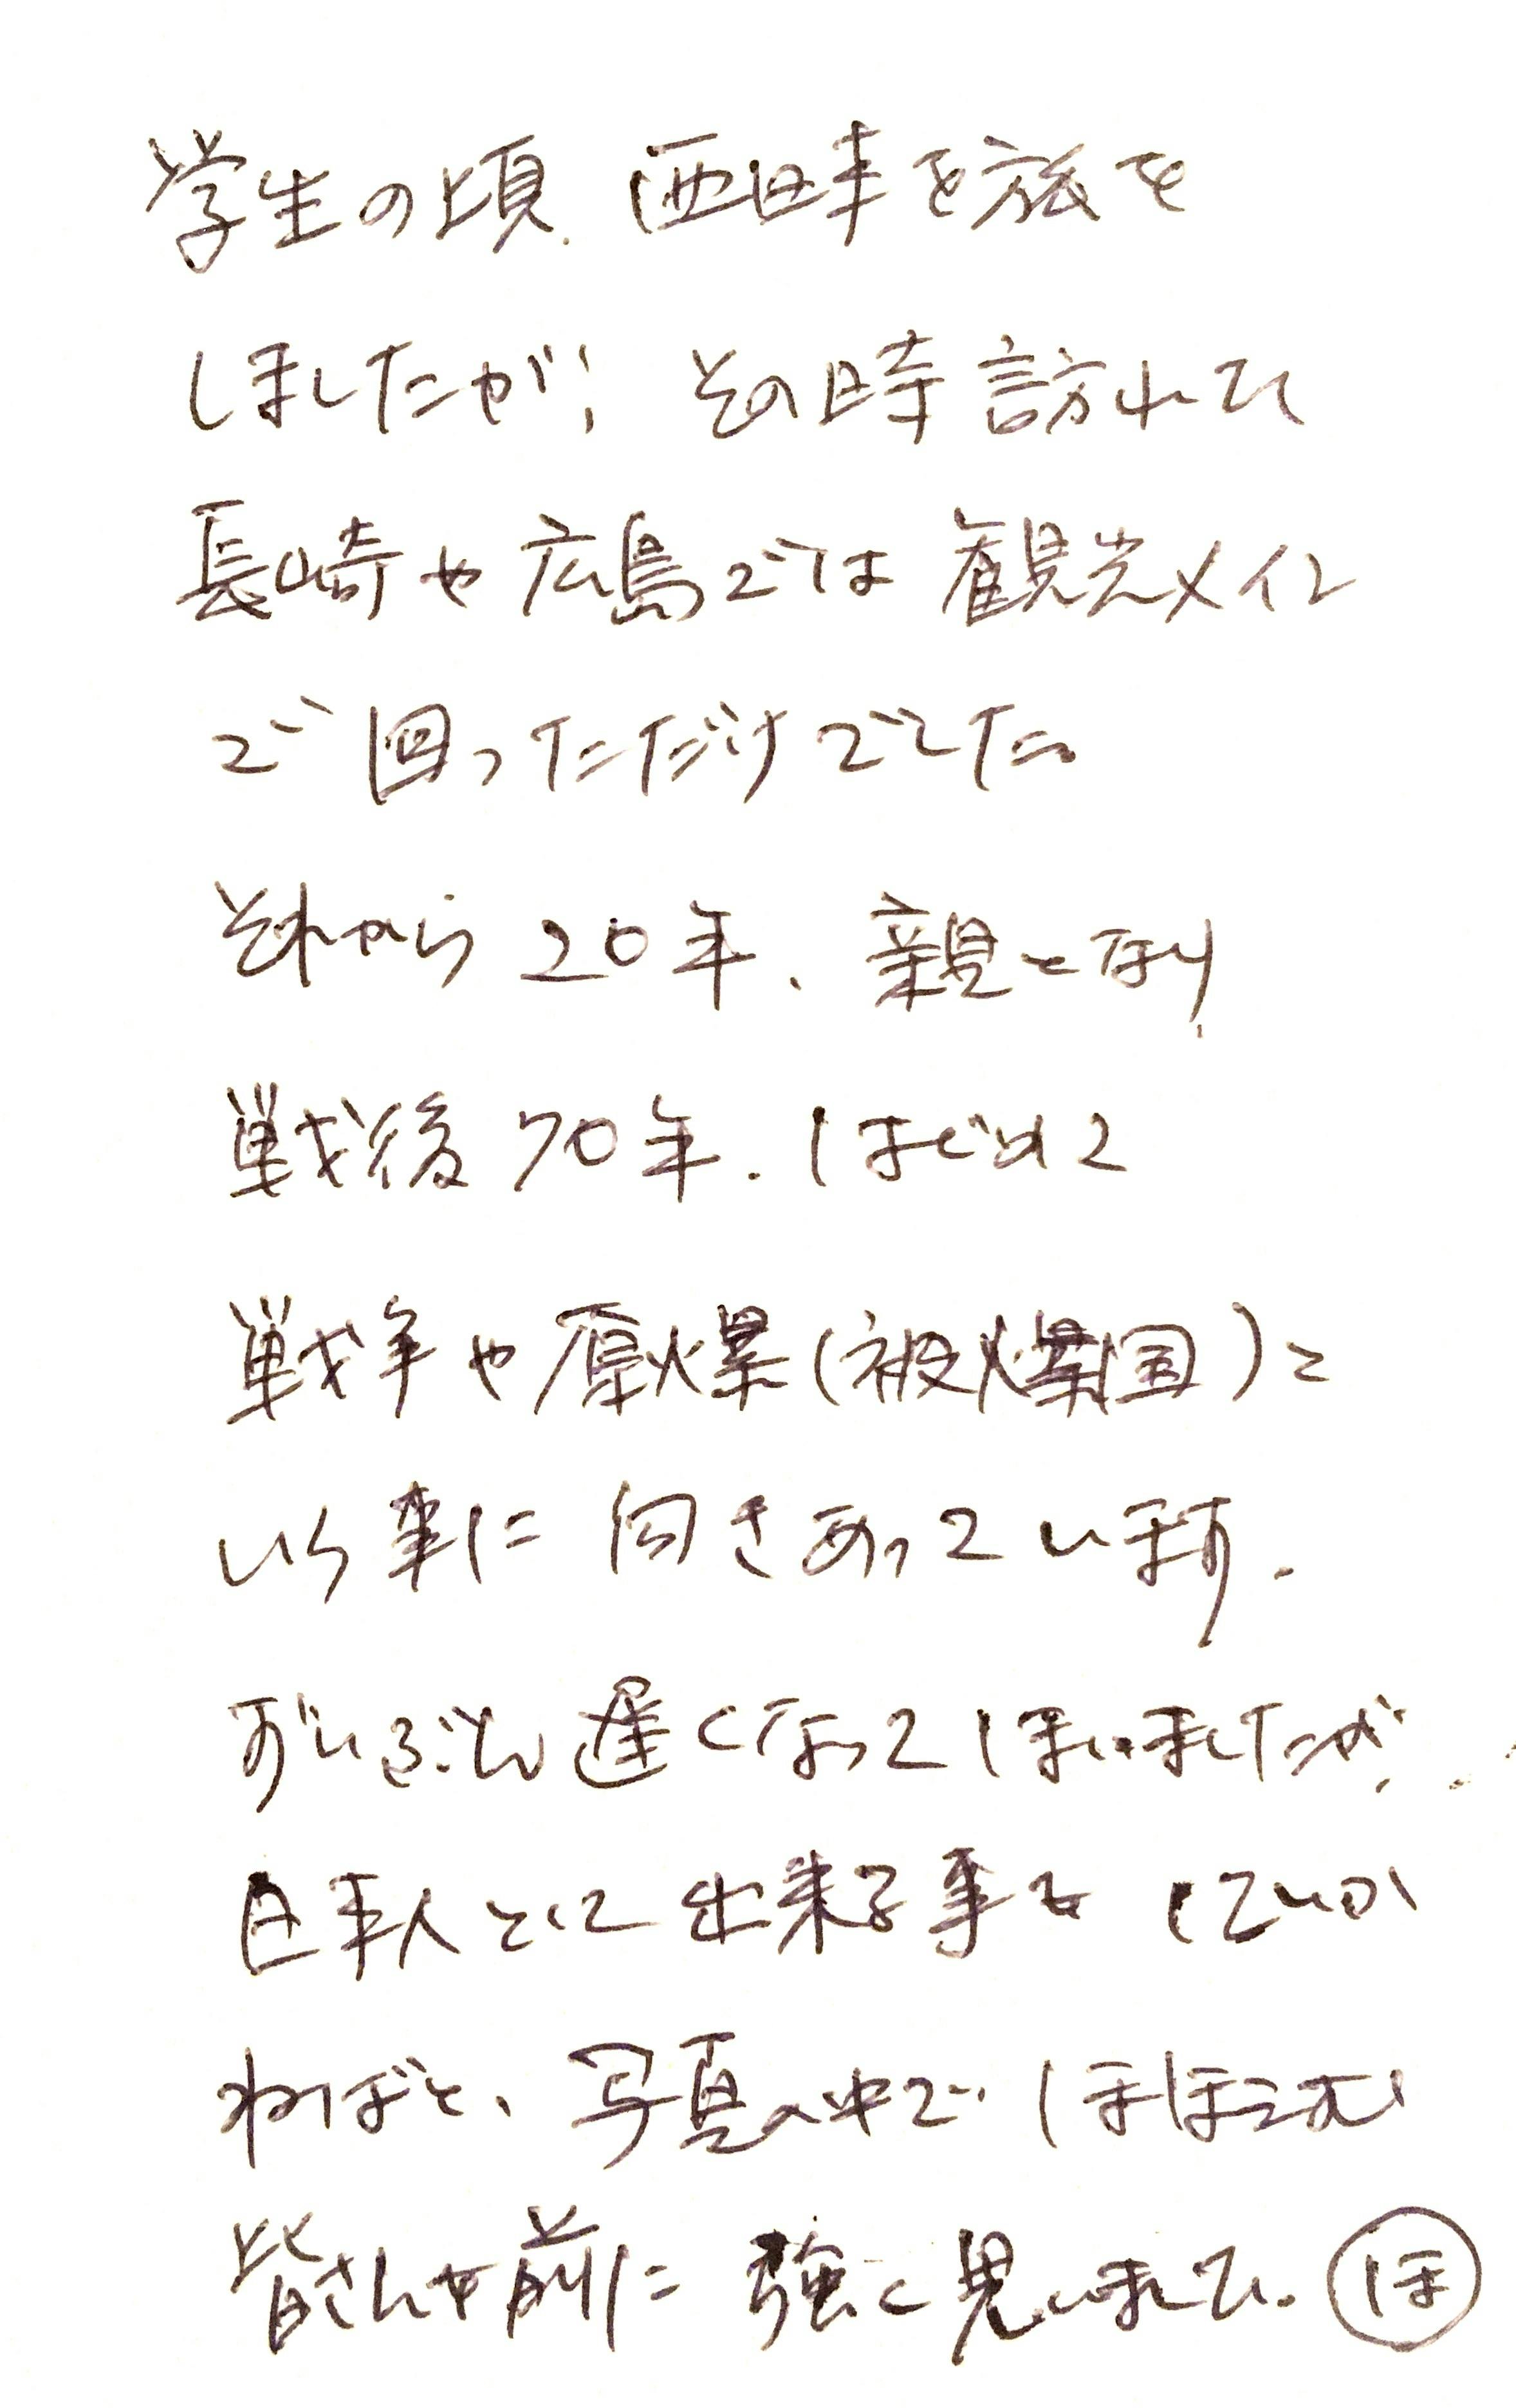 学生の頃、西日本を旅を
しましたが、その時訪れた
長崎や広島では観光メイン
で回っただけでした。
それから20年、親となり
戦後70年、はじめて
戦争や原爆(被爆国)と
いう事に向きあっています。
ずいぶん遅くなってしまいましたが、
日本人として出来る事をしていか
ねばと、写真の中でほほえむ
皆さんを前に強く思いました。 ほ